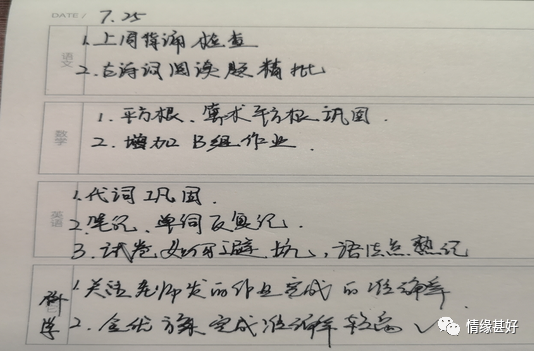 DATE / 7.25
语文
1.上周背诵检查
2.古诗词阅读题精批
数学
1.平方根、算术平方根巩固.
2.增加B组作业.
英语
1.代词巩固.
2.笔记、单词反复记.
3.试卷如何避坑,语法点熟记
科学
1.关注老师发的作业完成的准确率
2.全优方案完成准确率较高 ✓
情缘甚好